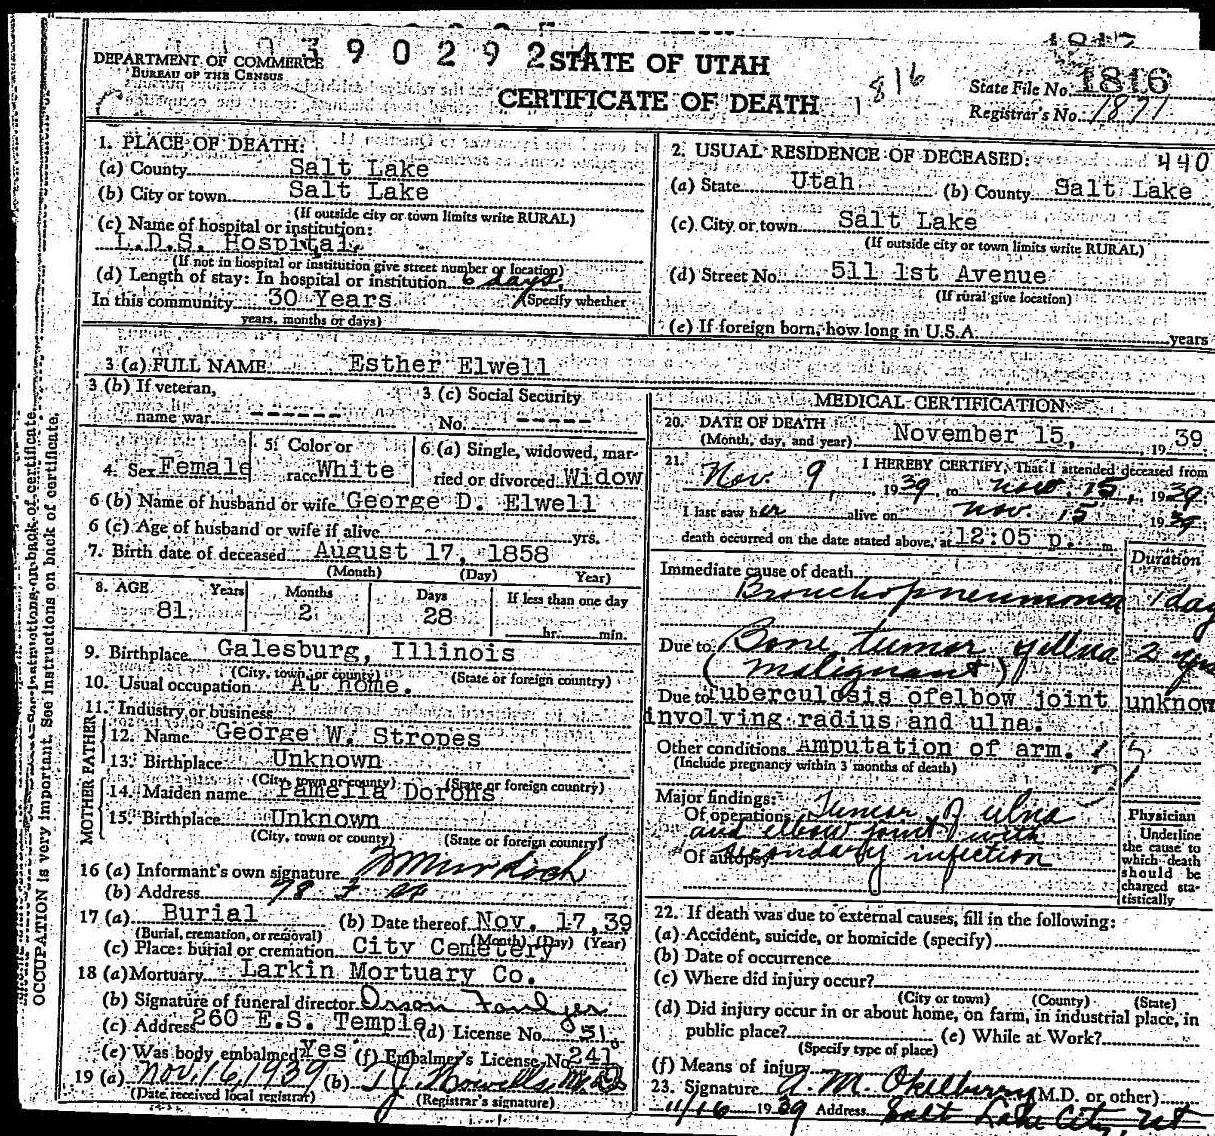 390292
1817
DEPARTMENT OF COMMERCE
BUREAU OF THE CENSUS
STATE OF UTAH
CERTIFICATE OF DEATH
1816
State File No. 1816
Registrar's No. 1871
1. PLACE OF DEATH:
(a) County Salt Lake
(b) City or town Salt Lake
(If outside city or town limits write RURAL)
(c) Name of hospital or institution:
L.D.S. Hospital.
(If not in hospital or institution give street number or location)
(d) Length of stay: In hospital or institution 6 days.
In this community 30 Years (Specify whether
years, months or days)
2. USUAL RESIDENCE OF DECEASED: 440
(a) State Utah (b) County Salt Lake
(c) City or town Salt Lake
(If outside city or town limits write RURAL)
(d) Street No. 511 1st Avenue
(If rural give location)
(e) If foreign born, how long in U.S.A. years
3 (a) FULL NAME Esther Elwell
3 (b) If veteran,
name war ------
3 (c) Social Security
No. -----
4. Sex Female
5. Color or
race White
6 (a) Single, widowed, mar-
ried or divorced Widow
6 (b) Name of husband or wife George D. Elwell
6 (c) Age of husband or wife if alive yrs.
7. Birth date of deceased August 17, 1858
(Month) (Day) Year)
8. AGE Years Months Days If less than one day
81 2 28 hr. min.
9. Birthplace Galesburg, Illinois
(City, town, or county) (State or foreign country)
10. Usual occupation At home.
11. Industry or business
FATHER
12. Name George W. Stropes
13. Birthplace Unknown
(City, town or county) (State or foreign country)
MOTHER
14. Maiden name Pamelia Dorons
15. Birthplace Unknown
(City, town or county) (State or foreign country)
16 (a) Informant's own signature Murdoch
(b) Address 78
17 (a) Burial (b) Date thereof Nov. 17, 39
(Burial, cremation, or removal) (Month) (Day) (Year)
(c) Place: burial or cremation City Cemetery
18 (a) Mortuary Larkin Mortuary Co.
(b) Signature of funeral director Orson Foulger
(c) Address 260 E.S. Temple (d) License No. 51
(e) Was body embalmed? Yes (f) Embalmer's License No. 241
19 (a) Nov. 16, 1939 (b) T.J. Howells, M.D.
(Date received local registrar) (Registrar's signature)
MEDICAL CERTIFICATION
20. DATE OF DEATH
(Month, day, and year) November 15, 1939
21. I HEREBY CERTIFY, That I attended deceased from
Nov. 9, 1939, to Nov. 15, 1939
I last saw her alive on Nov. 15 1939;
death occurred on the date stated above, at 12:05 p. m.
Duration
Immediate cause of death
Bronchopneumonia 1 day
Due to Bone tumor of ulna 2 yrs
(malignant)
Due to Tuberculosis of elbow joint unknow
involving radius and ulna.
Other conditions Amputation of arm.
(Include pregnancy within 3 months of death)
Major findings:
Of operations Tumor of ulna
and elbow joint with
Of autopsy secondary infection
Physician
Underline
the cause to
which death
should be
charged sta-
tistically
22. If death was due to external causes, fill in the following:
(a) Accident, suicide, or homicide (specify)
(b) Date of occurrence
(c) Where did injury occur?
(City or town) (County) (State)
(d) Did injury occur in or about home, on farm, in industrial place, in
public place? (e) While at Work?
(Specify type of place)
(f) Means of injury
23. Signature A. M. (M.D. or other)
11/16 1939 Address Salt Lake City, Ut
OCCUPATION is very important. See instructions on back of certificate.